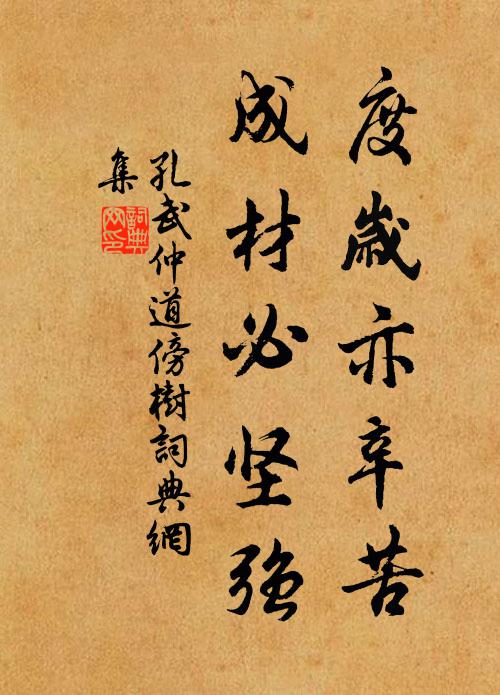 度歲亦辛苦
成材必坚强
孔武仲道傍樹詞典網
集
詞典
网印